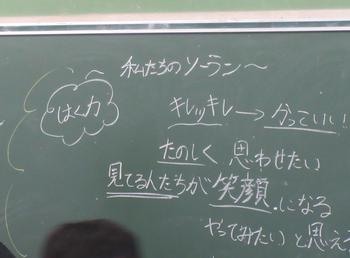 私たちのソーラン〜
はく力
キレッキレ→かっていい!!
たのしく 思わせたい
見てる人たちが笑顔になる
やってみたいと思え